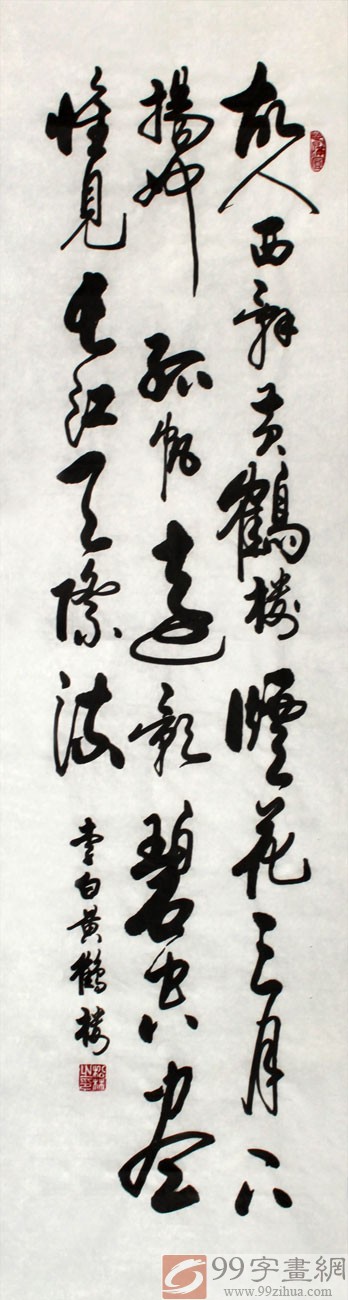 故人西辞黄鶴楼煙花三月下
揚州孤帆遠影碧空盡
惟見長江天際流
李白黄鶴楼
99字畫網
www.99zihua.com